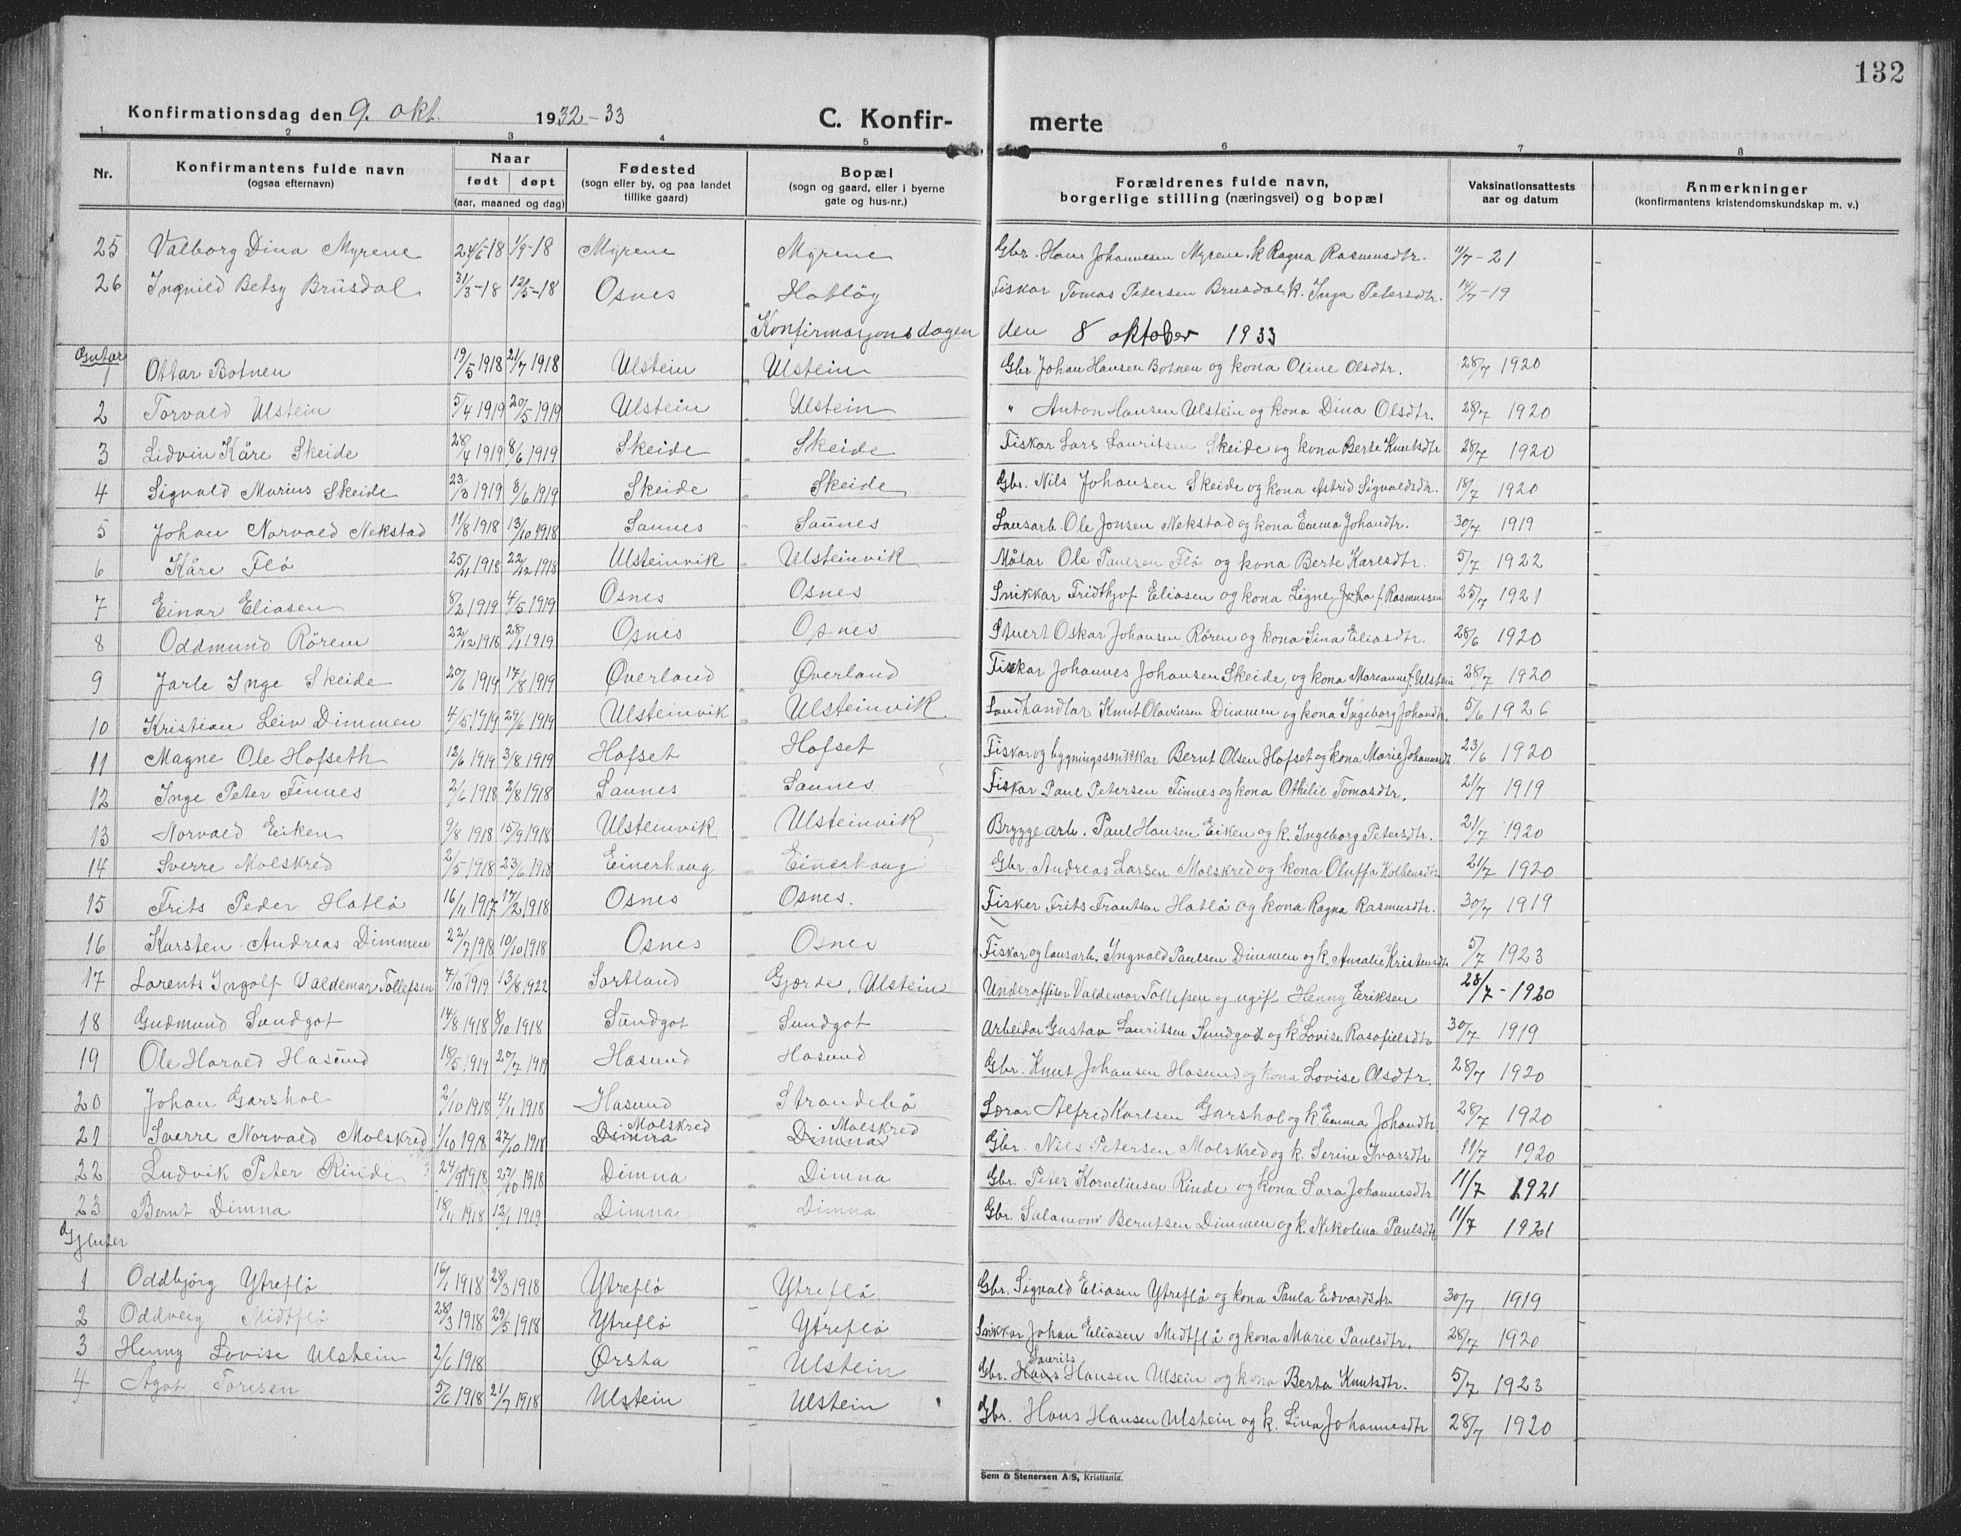 132
Konfirmationsdag den 9. okt. 1932-33 C. Konfir- merte
1 2 3 4 5 6 7 8
Nr. Konfirmantens fulde navn (ogsaa efternavn) Naar født døpt (aar, maaned og dag) Fødested (sogn eller by, og paa landet tillike gaard) Bopæl (sogn og gaard, eller i byerne gate og hus-nr.) Forældrenes fulde navn, borgerlige stilling (næringsvei) og bopæl Vaksinationsattests aar og datum Anmerkninger (konfirmantens kristendomskundskap m. v.)
25 Valborg Dina Myrene 24/6-18 1/9-18 Myrene Myrene Gbr. Hans Johannesen Myrene k Ragna Rasmusdtr. 11/7-21
26 Ingvild Betsy Brusdal 31/3-18 12/5-18 Osnes Hatløy Fiskar Tomas Petersen Brusdal k. Inga Petersdtr. -19
Konfirmasjonsdagen den 8 oktober 1933
Gutar
1 Ottar Botnen 19/5 1918 21/7 1918 Ulstein Ulstein Gbr. Johan Hansen Botnen og kona Oline Olsdtr. 28/7 1920
2 Torvald Ulstein 5/4 1919 20/5 1919 Ulstein Ulstein " Anton Hansen Ulstein og kona Dina Olsdtr. 28/7 1920
3 Lidvin Kåre Skeide 28/4 1919 8/6 1919 Skeide Skeide Fiskar Lars Lauritsen Skeide og kona Berte Knutsdtr 28/7 1920
4 Sigvald Marius Skeide 23/3 1919 8/6 1919 Skeide Skeide Gbr. Nils Johansen Skeide og kona Astrid Sigvaldsdtr. 18/7 1920
5 Johan Norvald Nekstad 11/8 1918 13/10 1918 Saunes Saunes Lausarb. Ole Jonsen Nekstad og kona Emma Johandtr. 30/7 1919
6 Kåre Flø 25/11 1918 22/12 1918 Ulsteinvik Ulsteinvik Målar Ole Paulsen Flø og kona Berte Karlsdtr. 5/7 1922
7 Einar Eliasen 8/2 1919 4/5 1919 Osnes Osnes Snikkar Fridthjof Eliasen og kona Signe f. Rasmussen 25/7 1921
8 Oddmund Rören 22/12 1918 28/1 1919 Osnes Osnes Stuert Oskar Johansen Røren og kona Sina Eliasdtr. 28/6 1920
9 Jarle Inge Skeide 20/6 1919 17/8 1919 Øverland Øverland Fiskar Johannes Johansen Skeide, og kona Marianne f. Ulstein 28/7 1920
10 Kristian Leiv Dimmen 4/5 1919 29/6 1919 Ulsteinvik Ulsteinvik Landhandlar Knut Olavinsen Dimmen og kona Ingeborg Johandtr. 5/6 1926
11 Magne Ole Hofseth 12/6 1919 3/8 1919 Hofset Hofset Fiskar og bygningssnikkar Bernt Olsen Hofset og kona Marie Johannesdtr. 23/6 1920
12 Inge Peter Finnes 2/6 1918 2/8 1918 Saunes Saunes Fiskar Paul Petersen Finnes og kona Othilie Tomasdtr. 21/7 1919
13 Norvald Eiken 9/8 1918 15/9 1918 Ulsteinvik Ulsteinvik Bryggearb. Paul Hansen Eiken og k. Ingeborg Petersdtr. 21/7 1920
14 Sverre Molskred 2/5 1918 23/6 1918 Einerhaug Einerhaug Gbr. Andreas Larsen Molskred og kona Oluffa Kolbensdtr 21/7 1920
15 Frits Peder Hatlø 16/11 1917 17/2 1918 Osnes Osnes. Fisker Frits Frantsen Hatlø og kona Ragna Rasmusdtr. 30/7 1919
16 Karsten Andreas Dimmen 22/7 1918 10/10 1918 Osnes Osnes Fiskar og lausarb. Ingvald Paulsen Dimmen og k. Amalie Kristensdtr 5/7 1923
17 Lorents Ingolf Valdemar Tollefsen 7/10 1919 13/8 1922 Sortland Gjerde, Ulstein Underoffiser Valdemar Tollefsen og ugift Henny Eriksen 28/7-1920
18 Gudmund Sundgot 14/8 1918 8/10 1918 Sundgot Sundgot Arbeidar Gustav Lauritsen Sundgot og k. Lovise Rasofielsdtr 30/7 1919
19 Ole Harald Hasund 18/5 1919 20/7 1919 Hasund Hasund Gbr. Knut Johansen Hasund og kona Lovise Olsdtr. 28/7 1920
20 Johan Garshol 2/10 1918 4/11 1918 Hasund Strandebø Lærar Alfred Karlsen Garshol og k. Emma Johandtr 28/7 1920
21 Sverre Norvald Molskred 1/10 1918 27/10 1918 Dimna Molskred Dimna Molskred Gbr. Nils Petersen Molskred og k. Serine Ivarsdtr 11/7 1920
22 Ludvik Peter Rinde 24/9 1918 27/10 1918 Dimna Dimna Gbr. Peter Korneliusen Rinde og kona Sara Johannesdtr 11/7 1921
23 Bernt Dimna 18/11 1918 12/1 1919 Dimna Dimna Gbr. Salamon Berntsen Dimmen og k. Nikolina Paulsdtr 11/7 1921
Gjenter
1 Oddbjörg Ytreflø 16/1 1918 28/3 1918 Ytreflø Ytreflø Gbr. Sigvald Eliasen Ytreflø og kona Paula Edvardsdr 30/7 1919
2 Oddveig Midtflø 28/3 1918 29/5 1918 Ytreflø Ytreflø Snikkar Johan Eliasen Midtflø og kona Marie Paulsdtr. 28/7 1920
3 Henny Lovise Ulstein 2/6 1918 Ørsta Ulstein Gbr. Hans Laurits Hansen Ulsein og kona Berta Knutsdtr. 5/7 1923
4 Agot Toresen 5/6 1918 21/7 1918 Ulstein Ulstein Gbr. Hans Hansen Ulstein og k. Lina Johannesdtr 28/7 1920
Sem & Stenersen A/S, Kristiania.